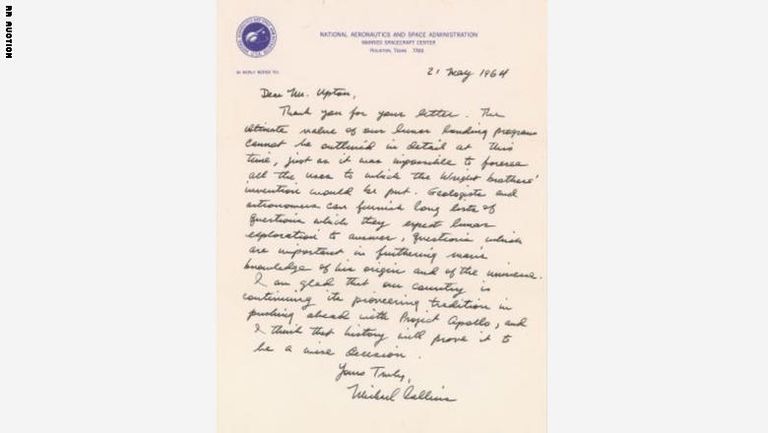 RR AUCTION
NATIONAL AERONAUTICS AND SPACE ADMINISTRATION
MANNED SPACECRAFT CENTER
HOUSTON, TEXAS
IN REPLY REFER TO:
21 May 1964
Dear Mr. Upton,
Thank you for your letter. The
ultimate value of our lunar landing program
cannot be outlined in detail at this
time, just as it was impossible to foresee
all the uses to which the Wright brothers'
invention would be put. Geologists and
astronomers can furnish long lists of
questions which they expect lunar
exploration to answer, questions which
are important in furthering man's
knowledge of his origin and of the universe.
I am glad that our country is
continuing its pioneering tradition in
pushing ahead with Project Apollo, and
I think that history will prove it to
be a wise decision.
Yours Truly,
Michael Collins